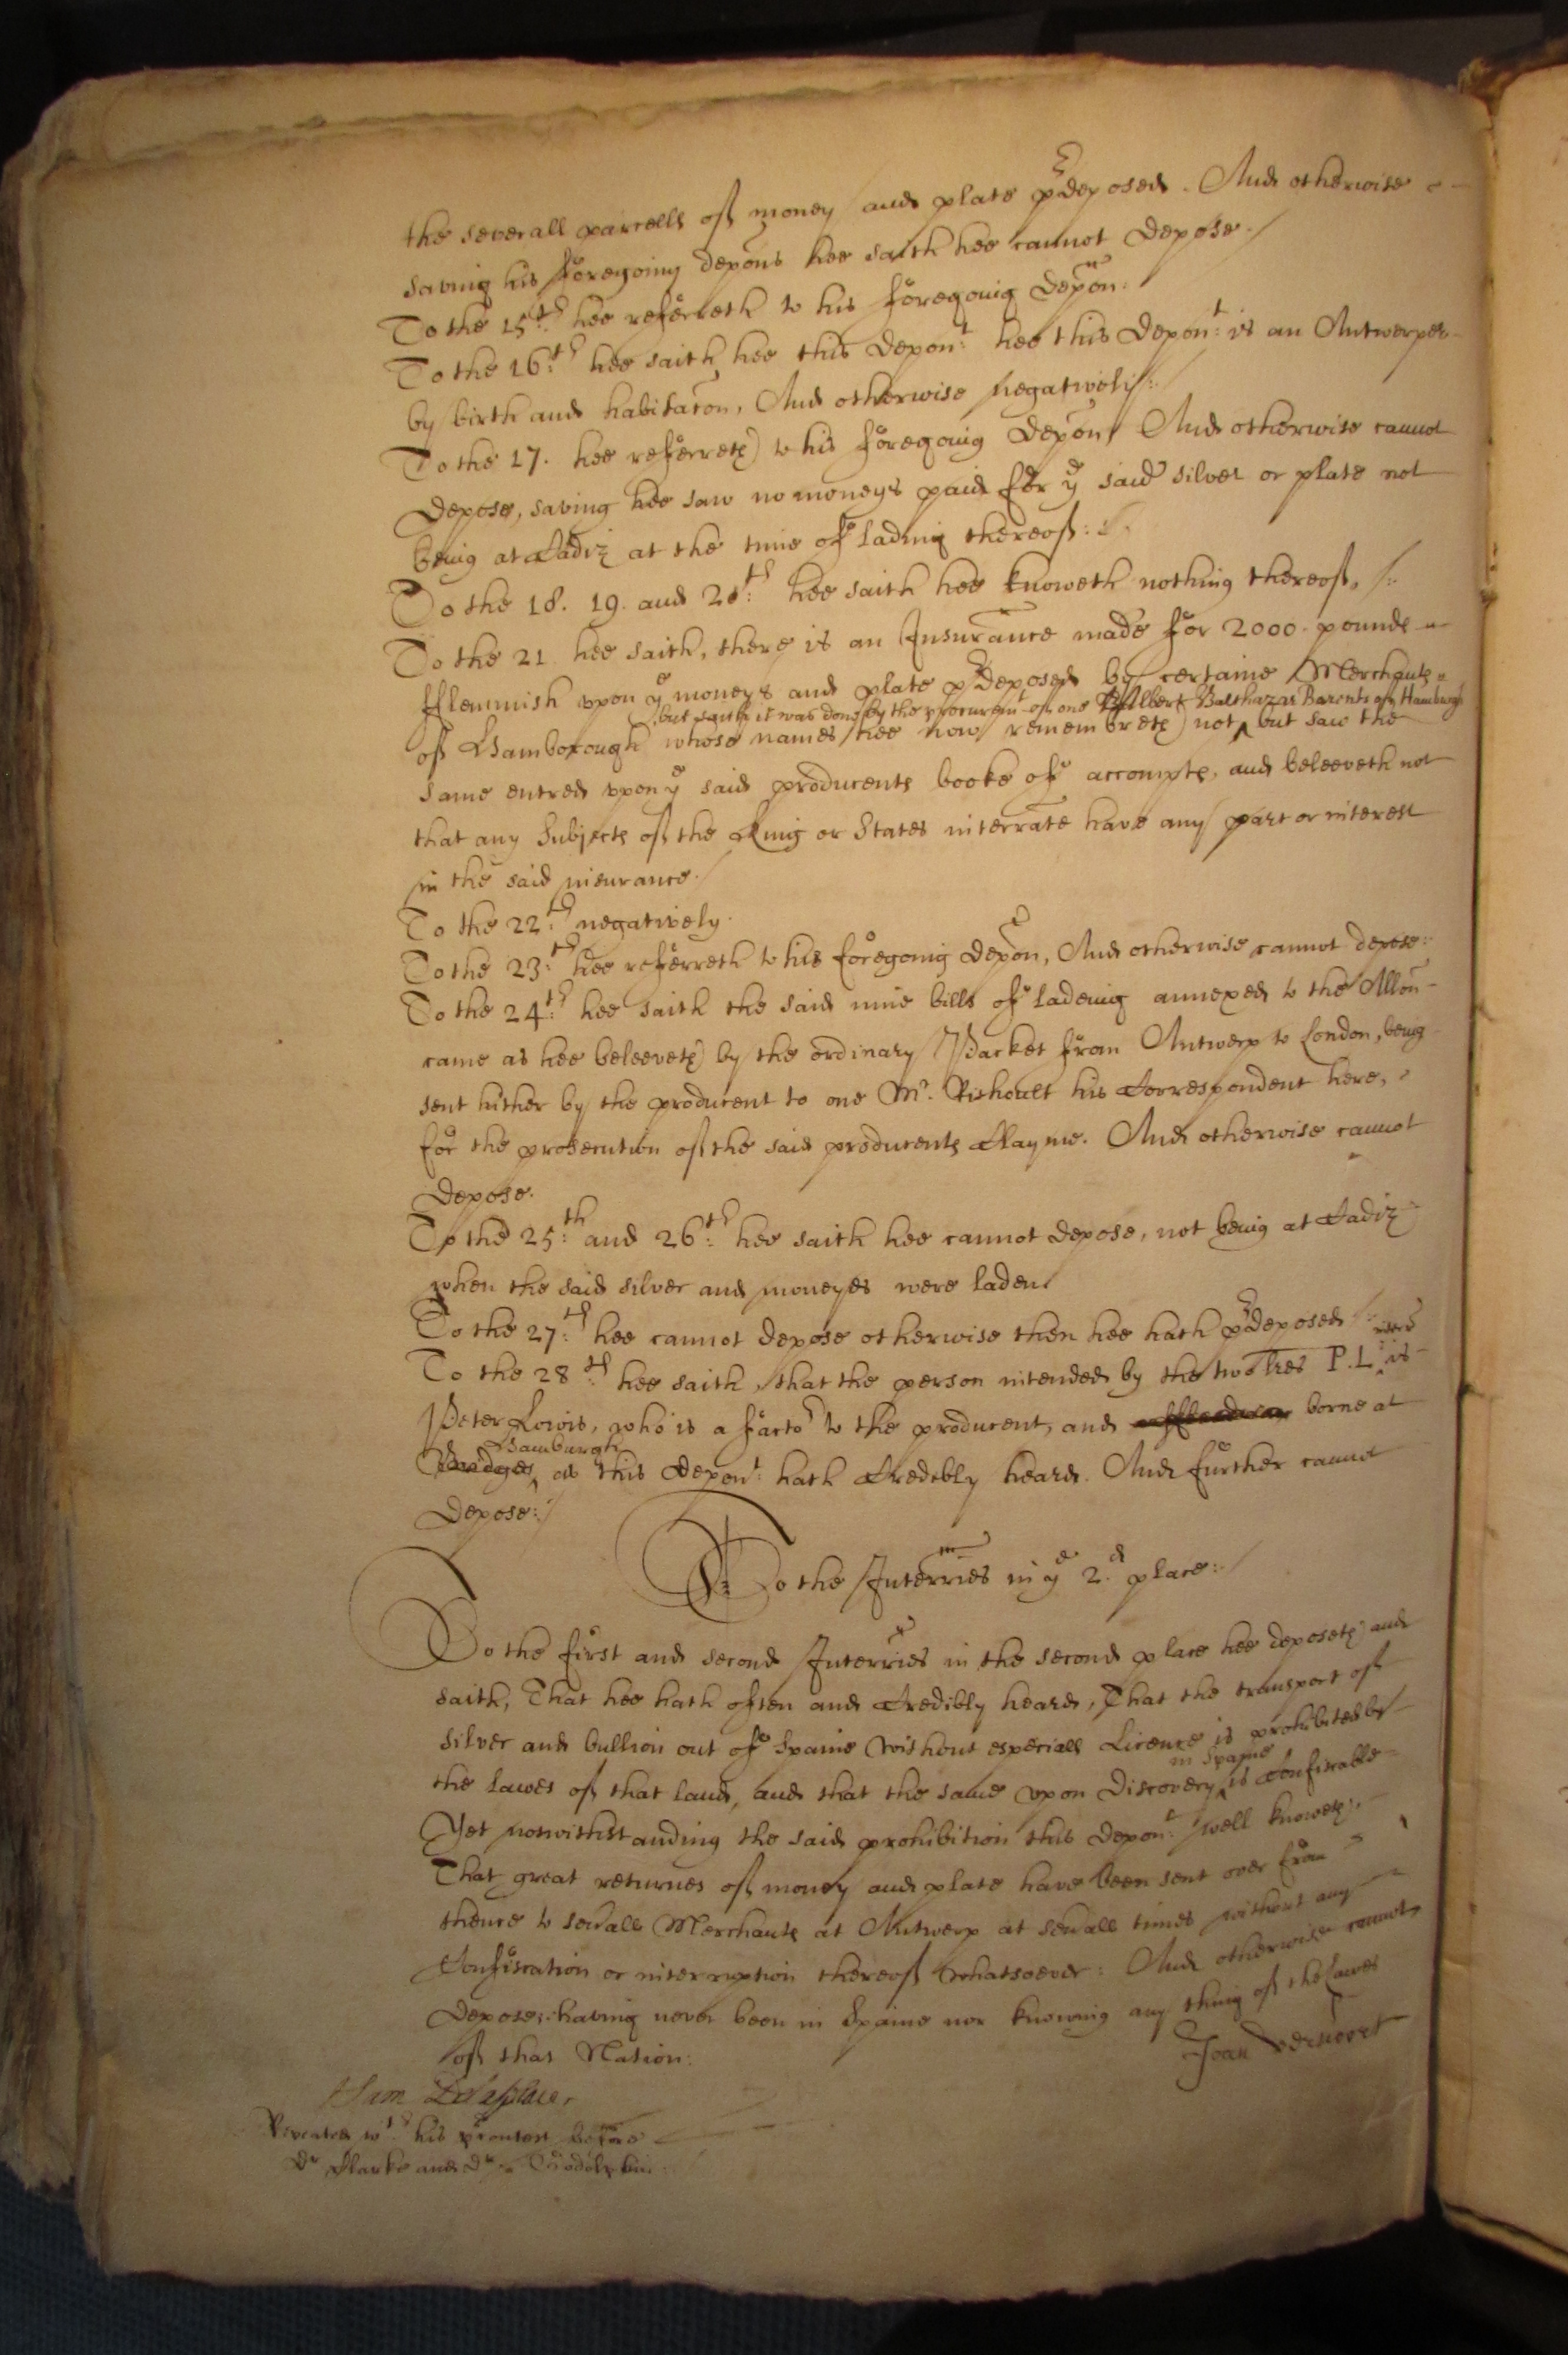 the severall parcells of money and plate p̃deposed. And otherwise
saving his foregoing depons hee saith hee cannot depose./
To the 15th: hee referreth to his foregoing depõn:
To the 16:th hee saith hee this depont: hee this depont: is an Antwerper
by birth and habitacõn, And otherwise negatively:/
To the 17. hee referreth to his foregoing depõn, And otherwise cannot
depose, saving hee saw no moneys paid for ye said silver or plate not
being at Cadiz at the time of lading thereof:
To the 18. 19. and 20th: hee saith hee knoweth nothing thereof,/:
To the 21 hee saith, there is an Insurance made for 2000 pounds
fflemmish vpon ye moneys and plate p̃deposed by certaine Merchants
but saith it was done by the procuremt of one Albert Balthazar Barents of Hamburgh
of Hamborough whose names hee now remembreth not, but saw the
same entred vpon ye said producents booke of accompts, and beleeveth not
that any Subjects of the King or States interrate have any part or interest
in the said insurance./
To the 22:th negatively.
To the 23:th hee referreth to his foregoing depõn, And otherwise cannot depose:
To the 24:th hee saith the said nine bills of ladeing annexed to the Allõn
came as hee beleeveth by the ordinary Packet from Antwerp to London, being
sent hither by the producent to one Mr. Rishoult his Correspondent here,
for the prosecution of the said producents Clayme. And otherwise cannot
depose.
To the 25:th and 26:th hee saith hee cannot depose, not being at Cadiz
when the said silver and moneyes were laden
To the 27:th hee cannot depose otherwise then hee hath p̃deposed
To the 28:th hee saith, that the person intended by the two l̃res P. L. is
Peter Lowis, who is a factor to the producent, and borne at
Hamburgh
Bridges as this depont: hath credibly heard. And further cannot
depose:/
To the Interr̃ies in ye 2.d place:/
To the first and second Interr̃ies in the second place hee deposeth and
saith, That hee hath often and credibly heard, That the transport of
silver and bullion out of Spaine without especiall Licence is prohibited by
in Spayne
the lawes of that land, and that the same vpon discovery is confiscable
Yet notwithstanding the said prohibition this depont: well knoweth,
That great returnes of money and plate have been sent over from
thence to sev̄all Merchants at Antwerp at sev̄all times without any
Confiscation or interruption thereof whatsoever: And otherwise cannot
depose, having never been in Spaine nor knowing any thing of the lawes
of that Nation:
Joan
Sam
Repeated wth his before
Dr Clarke and Dr Godolphin: